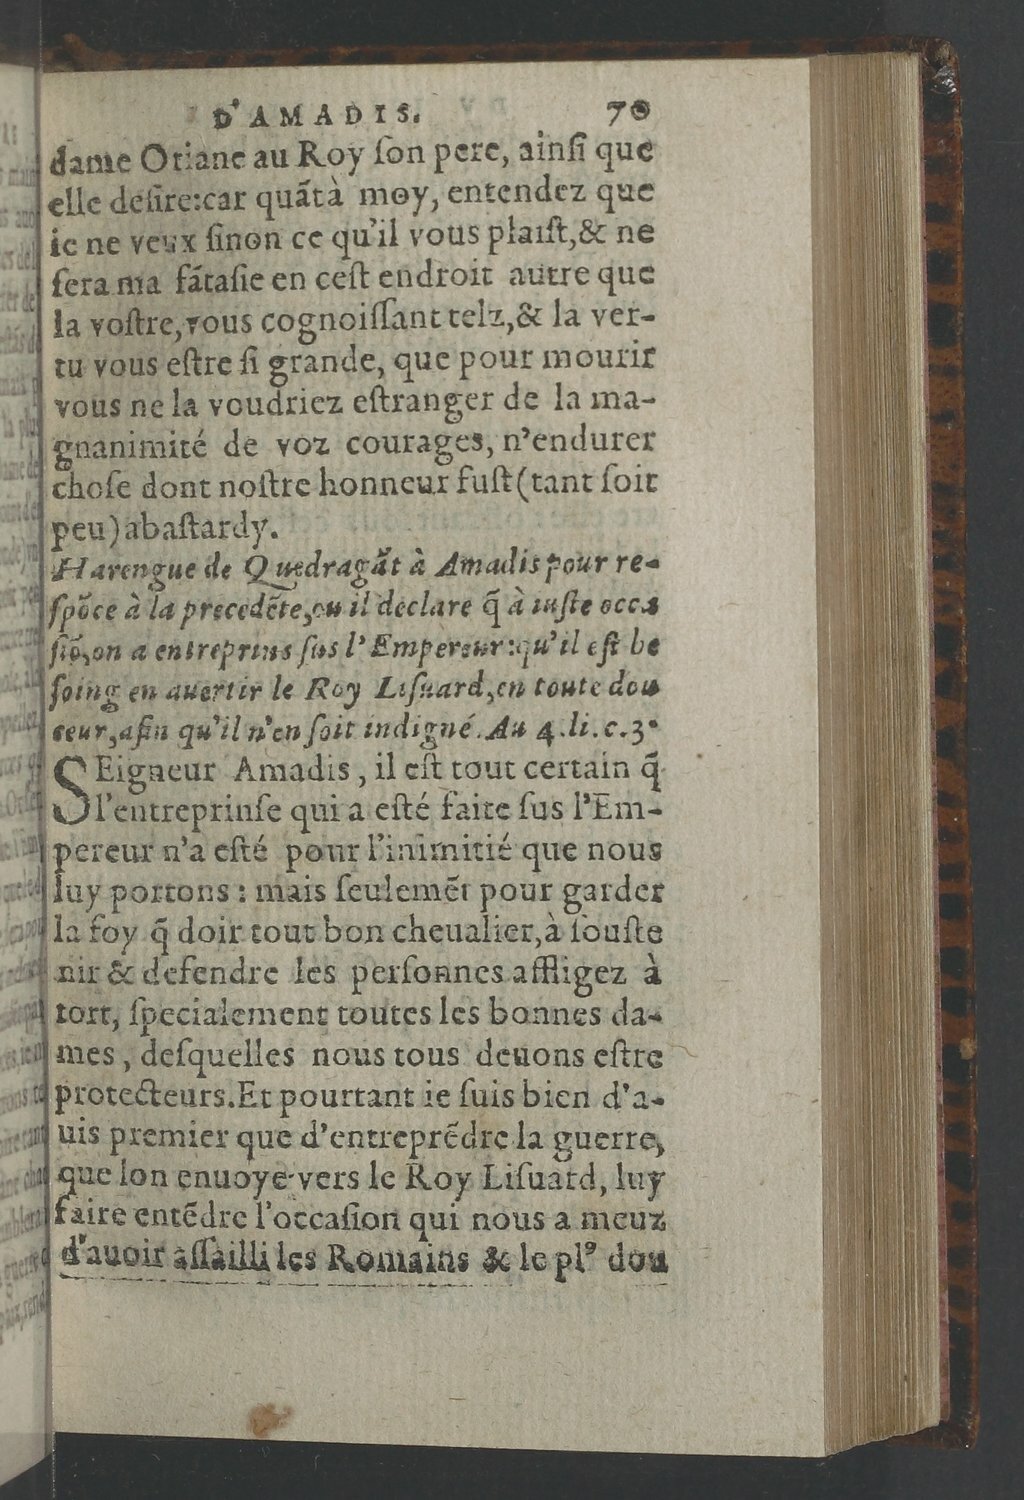 D'AMADIS. 70
dame Oriane au Roy ſon pere, ainſi que
elle deſire:car quãt à moy, entendez que
ie ne veux ſinon ce qu'il vous plaiſt,& ne
ſera ma fãtaſie en ceſt endroit autre que
la voſtre,vous cognoiſſant telz,& la ver-
tu vous eſtre ſi grande, que pour mourir
vous ne la voudriez eſtranger de la ma-
gnanimité de voz courages, n'endurer
choſe dont noſtre honneur fuſt(tant ſoit
peu)abaſtardy.
Harengue de Quedragãt à Amadis pour re-
ſpõce à la precedẽte,ou il declare q̃ à iuſte occa
ſiõ,on a entreprins ſus l'Empereur:qu'il eſt be
ſoing en auertir le Roy Liſuard,en toute dou
ceur,afin qu'il n'en ſoit indigné. Au 4.li.c.3.
SEigneur Amadis, il eſt tout certain q̃
l'entreprinſe qui a eſté faite ſus l'Em-
pereur n'a eſté pour l'inimitié que nous
luy portons : mais ſeulemẽt pour garder
la foy q̃ doit tout bon cheualier,à ſouſte
nir & defendre les perſonnes affligez à
tort, ſpecialement toutes les bonnes da-
mes, deſquelles nous tous deuons eſtre
protecteurs.Et pourtant ie ſuis bien d'a-
uis premier que d'entreprẽdre la guerre,
que lon enuoye vers le Roy Liſuard, luy
faire entẽdre l'occaſion qui nous a meuz
d'auoir aſſailli les Romains & le plꝰ dou